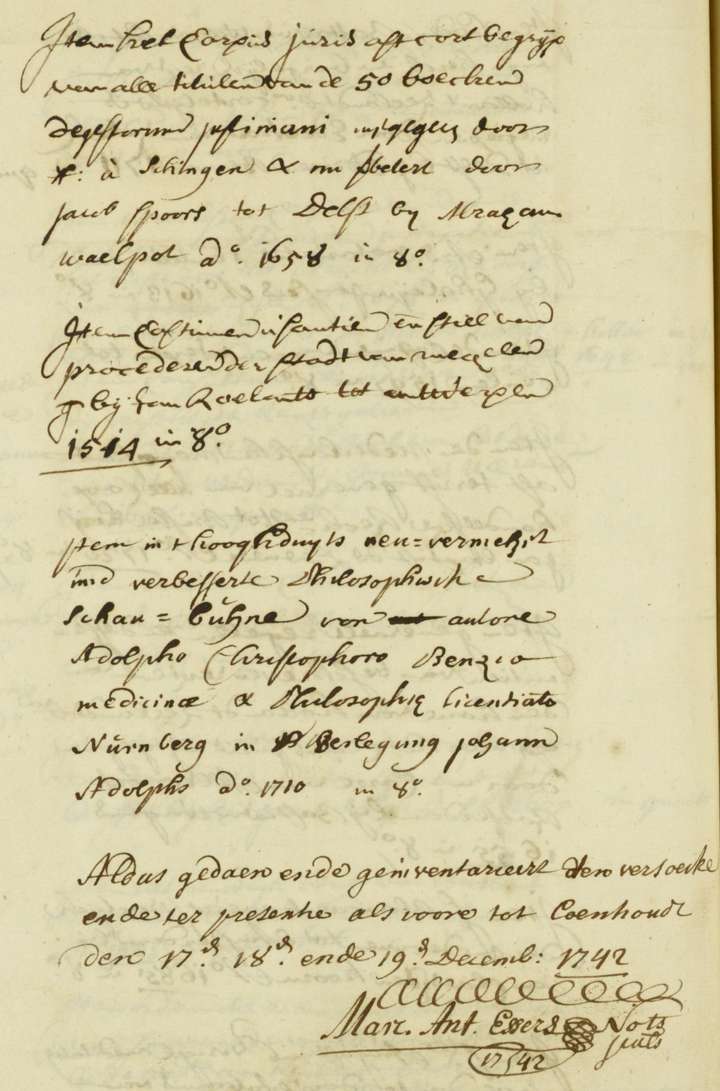 Item het Corpus juris oft cort begrijp
van alle titulen van de 50 boecken
degestorum justiniani uijtgegev door
H: à Schingen & nu door
jacob spoors tot Delft by Abraham
waelpot A°. 1658 in 8°.
Item Costumen usantien en stiel van
procederen der stadt van mecgelen
by jan Roelants tot antwerpen
1514 in 8°.
jtem in t hooghduyts neu=vermehrt
und verbesserte Philosophische
Schau=bühne von autore
Adolpho Christophoro Benzio
medicinæ & Philosophiæ licentiato
Nürnberg in Verlegung johann
Adolphs A°. 1710 in 8°.
Aldus gedaen ende geinventarieert ten versoecke
ende ter presentie als voore tot Coenhoudt
den 17d. 18d. ende 19d. Decemb: 1742
Marc. Ant. Essers Nots
pubs
1742